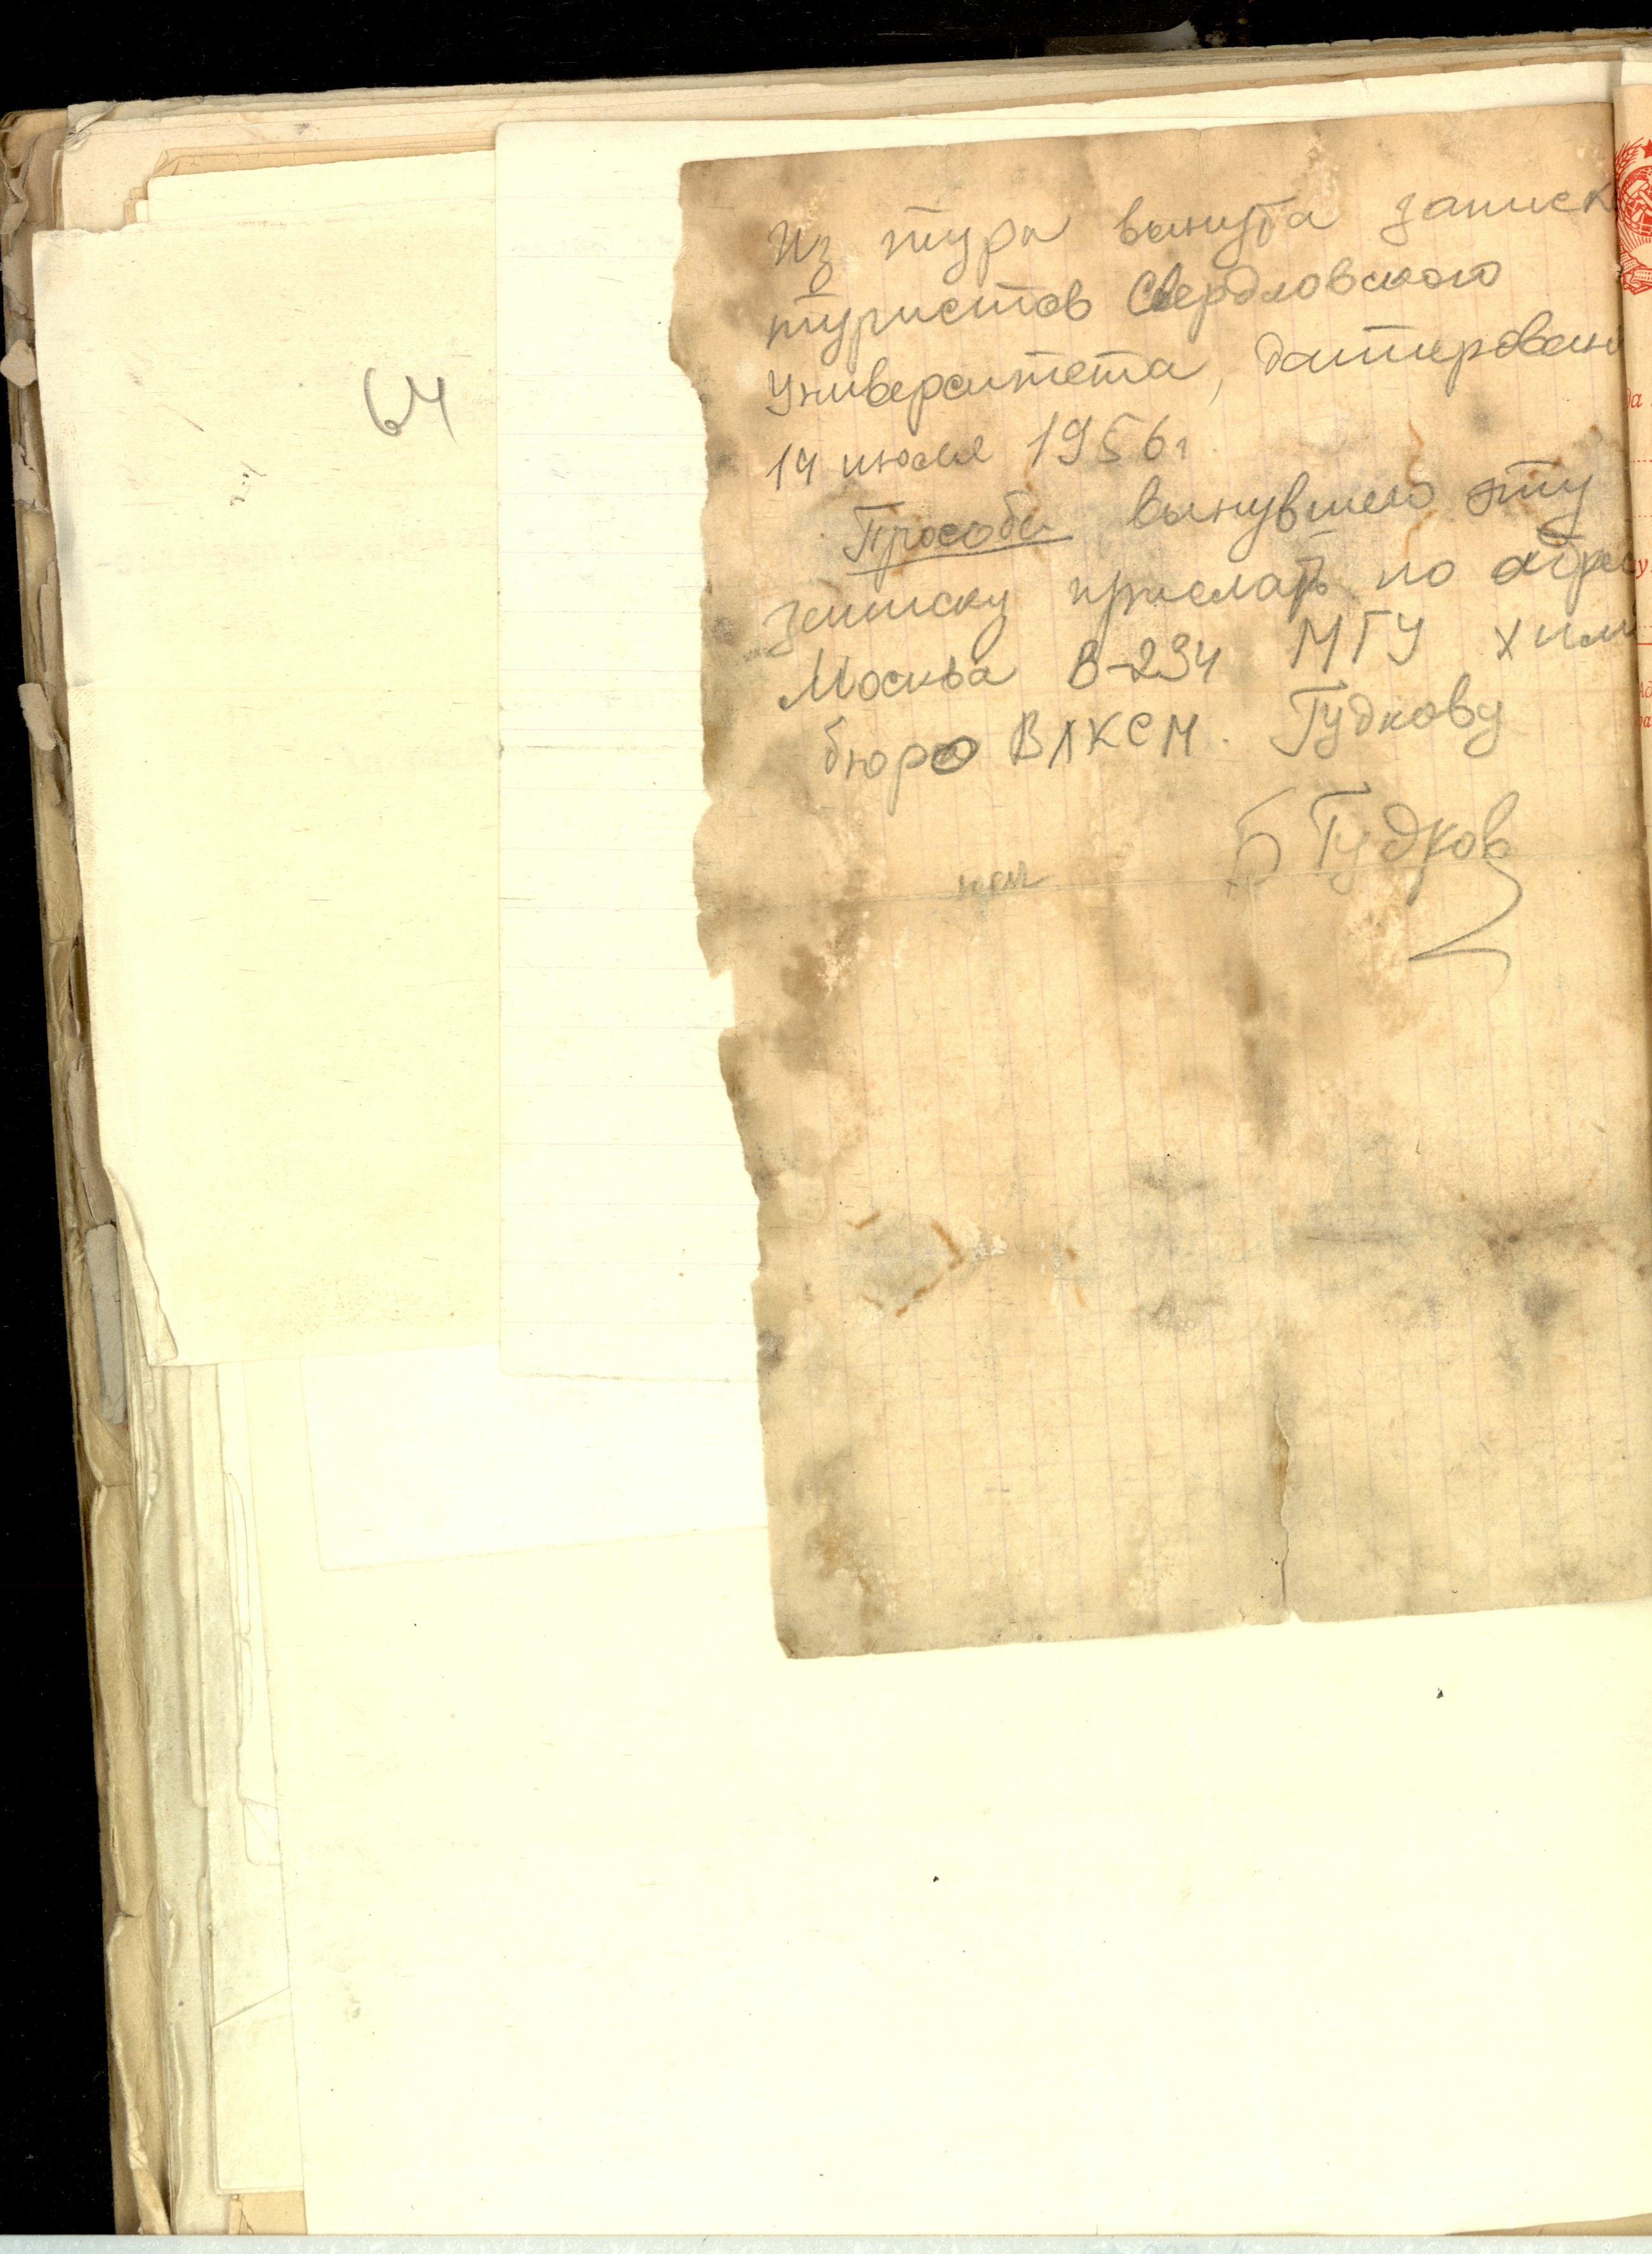 64
Из тура вынута записк
туристов Свердловского
Университета, датирован
14 июля 1956г
Просьба вынувшего эту
записку прислать по адрес
Москва В-234 МГУ хим
бюро ВЛКСМ. Гудкову
Б Гудков